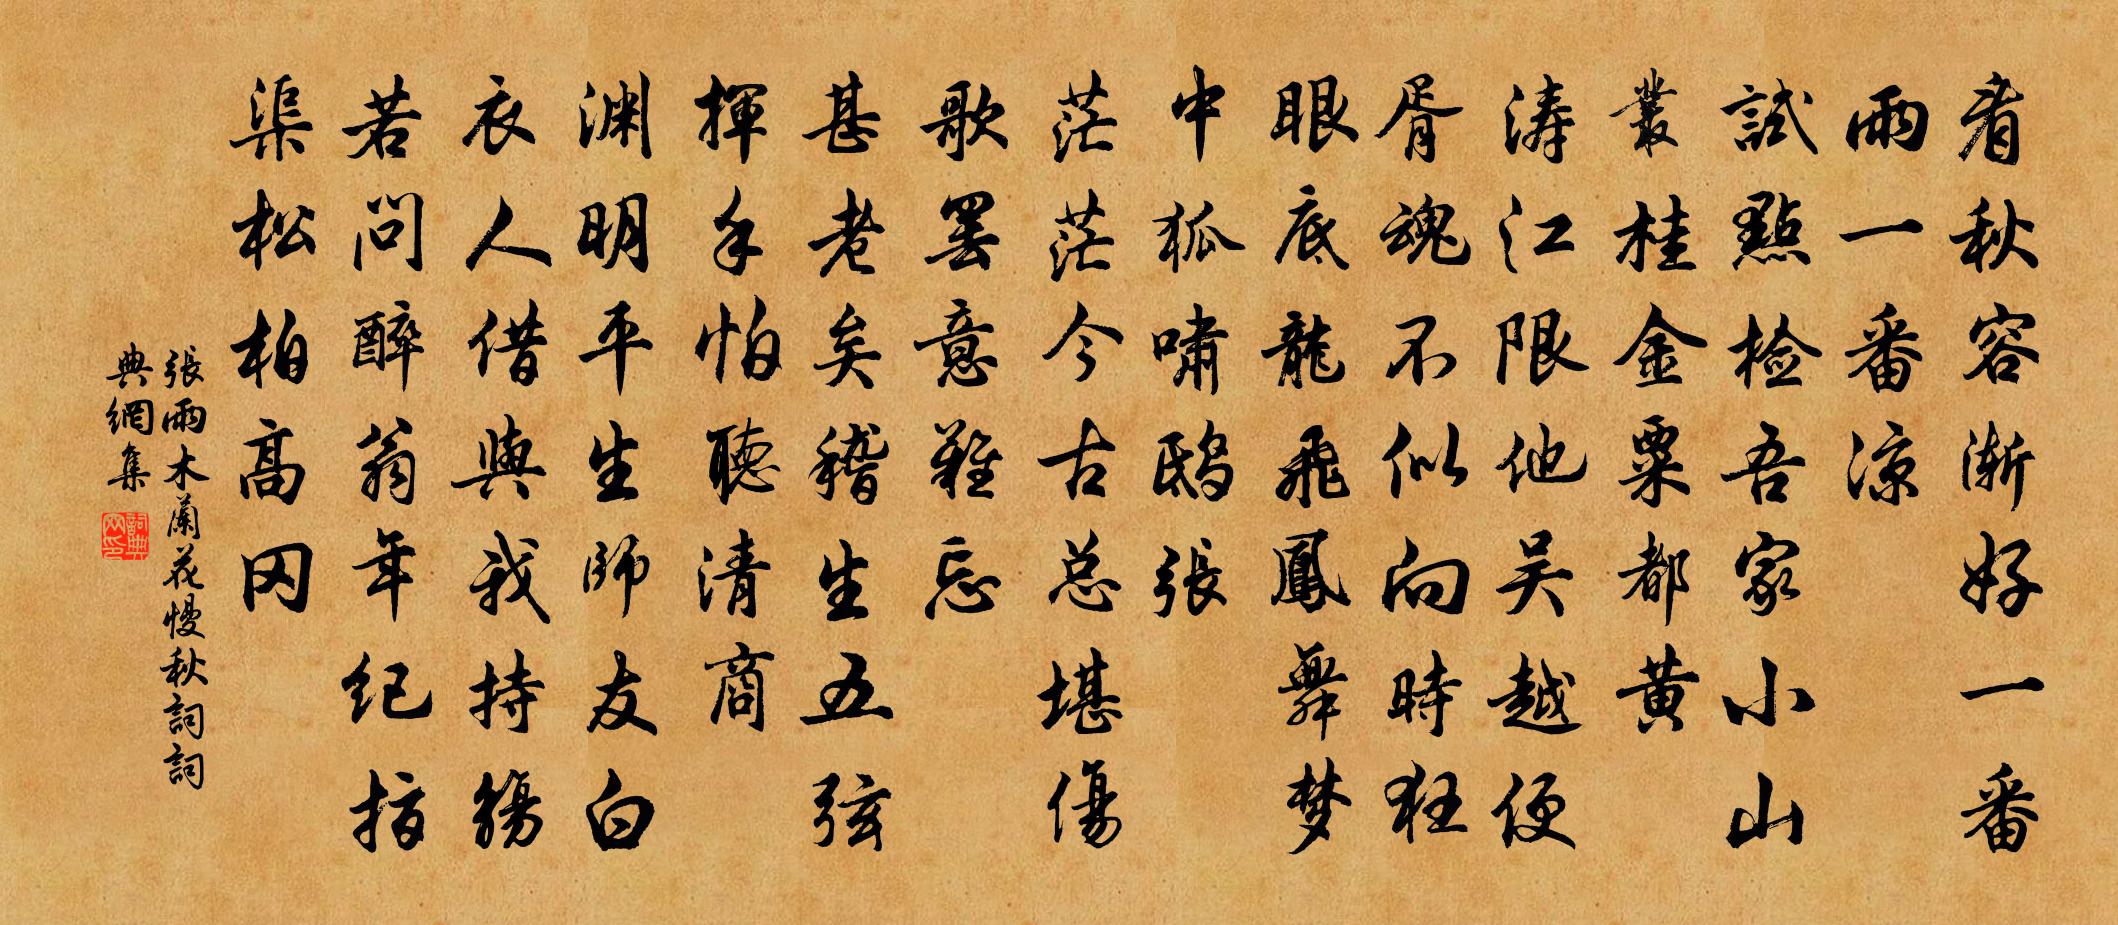 看秋容渐好一番
雨一番凉
試點检吾家小山
叢桂金粟都黄
涛江限他吴越便
胥魂不似向時狂
眼底龍飛鳳舞梦
中狐啸鴟張
茫茫今古总堪傷
歌罢意難忘
甚老矣嵇生五弦
揮手怕聽清商
渊明平生師友白
衣人借與我持觴
若問醉翁年纪指
渠松柏高冈
張雨木蘭花慢秋詞詞
典網集
詞典网印